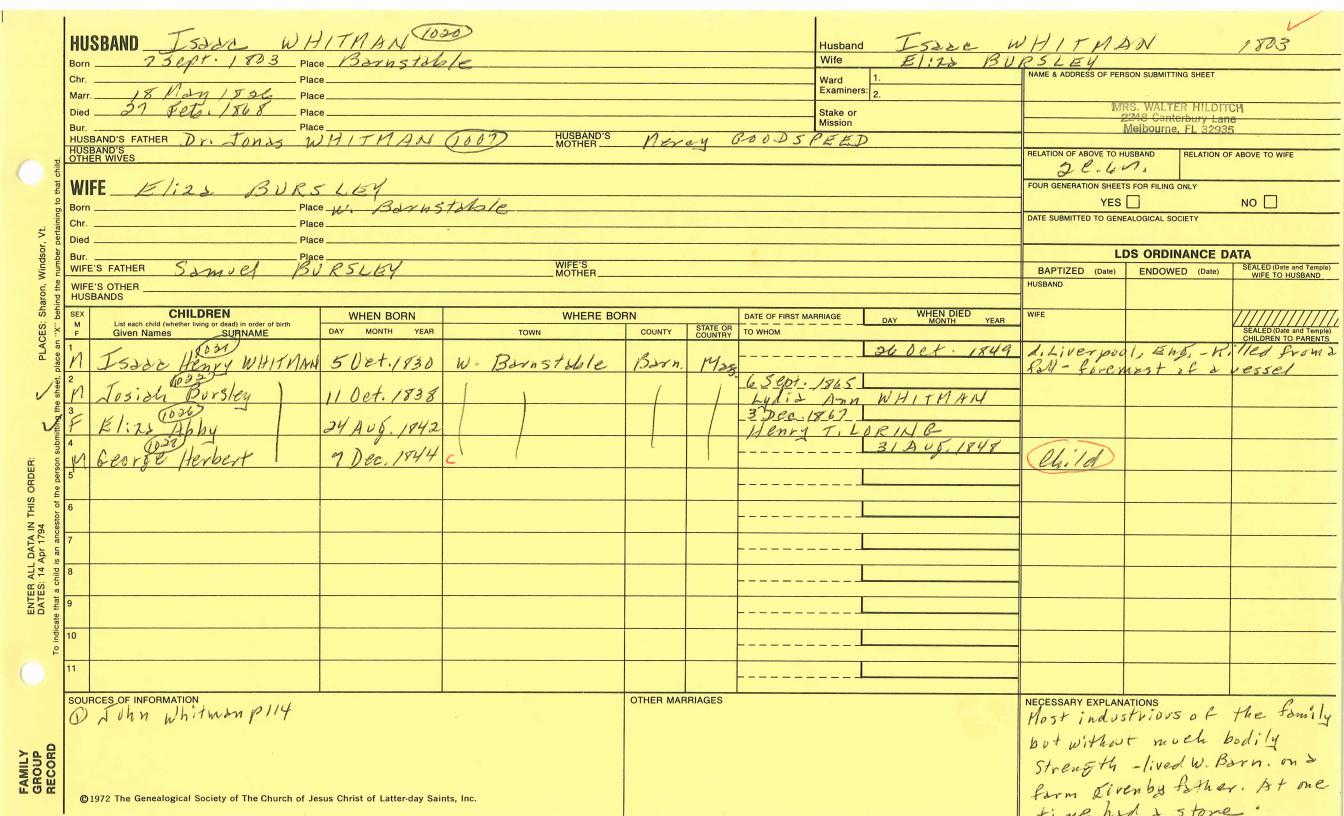 HUSBAND Isaac WHITMAN 1020
Born 7 Sept. 1803 Place Barnstable
Chr. Place
Marr. 18 May 1826 Place
Died 27 Feb. 1868 Place
Bur. Place
HUSBAND'S FATHER Dr. Jonas WHITMAN 1007 HUSBAND'S MOTHER Mercy GOODSPEED
HUSBAND'S OTHER WIVES
WIFE Eliza BURSLEY
Born Place W. Barnstable
Chr. Place
Died Place
Bur. Place
WIFE'S FATHER Samuel BURSLEY WIFE'S MOTHER
WIFE'S OTHER HUSBANDS
Husband Isaac WHITMAN 1803
Wife Eliza BURSLEY
Ward Examiners: 1.
2.
Stake or Mission
NAME & ADDRESS OF PERSON SUBMITTING SHEET
MRS. WALTER HILDITCH
2248 Canterbury Lane
Melbourne, FL 32935
RELATION OF ABOVE TO HUSBAND RELATION OF ABOVE TO WIFE
FOUR GENERATION SHEETS FOR FILING ONLY
YES NO
DATE SUBMITTED TO GENEALOGICAL SOCIETY
LDS ORDINANCE DATA
BAPTIZED (Date) ENDOWED (Date) SEALED (Date and Temple) WIFE TO HUSBAND
HUSBAND
WIFE
SEALED (Date and Temple) CHILDREN TO PARENTS
SEX M F CHILDREN WHEN BORN WHERE BORN DATE OF FIRST MARRIAGE WHEN DIED
List each child (whether living or dead) in order of birth
Given Names SURNAME DAY MONTH YEAR TOWN COUNTY STATE OR COUNTRY TO WHOM DAY MONTH YEAR
1 M Isaac Henry WHITMAN 5 Oct. 1830 W. Barnstable Barn. Mas. 26 Oct. 1849 d. Liverpool, Eng. - Killed from a
fall - foremast of a vessel
2 M Josiah Bursley 11 Oct. 1838 6 Sept. 1865
Lydia Ann WHITMAN
3 F Eliza Abby 1026 24 Aug. 1842 3 Dec. 1867
Henry T. LORING
4 M George Herbert 7 Dec. 1844 C 31 Aug. 1848 Child
5
6
7
8
9
10
11
SOURCES OF INFORMATION
① John Whitman p114
OTHER MARRIAGES
NECESSARY EXPLANATIONS
Most industrious of the family
but without much bodily
strength - lived W. Barn. on a
farm given by father. At one
time had a store.
©1972 The Genealogical Society of The Church of Jesus Christ of Latter-day Saints, Inc.
FAMILY GROUP RECORD
ENTER ALL DATA IN THIS ORDER:
DATES: 14 Apr 1794
PLACES: Sharon, Windsor, Vt.
To indicate that a child is an ancestor of the person submitting the sheet, place an "X" behind the number pertaining to that child.